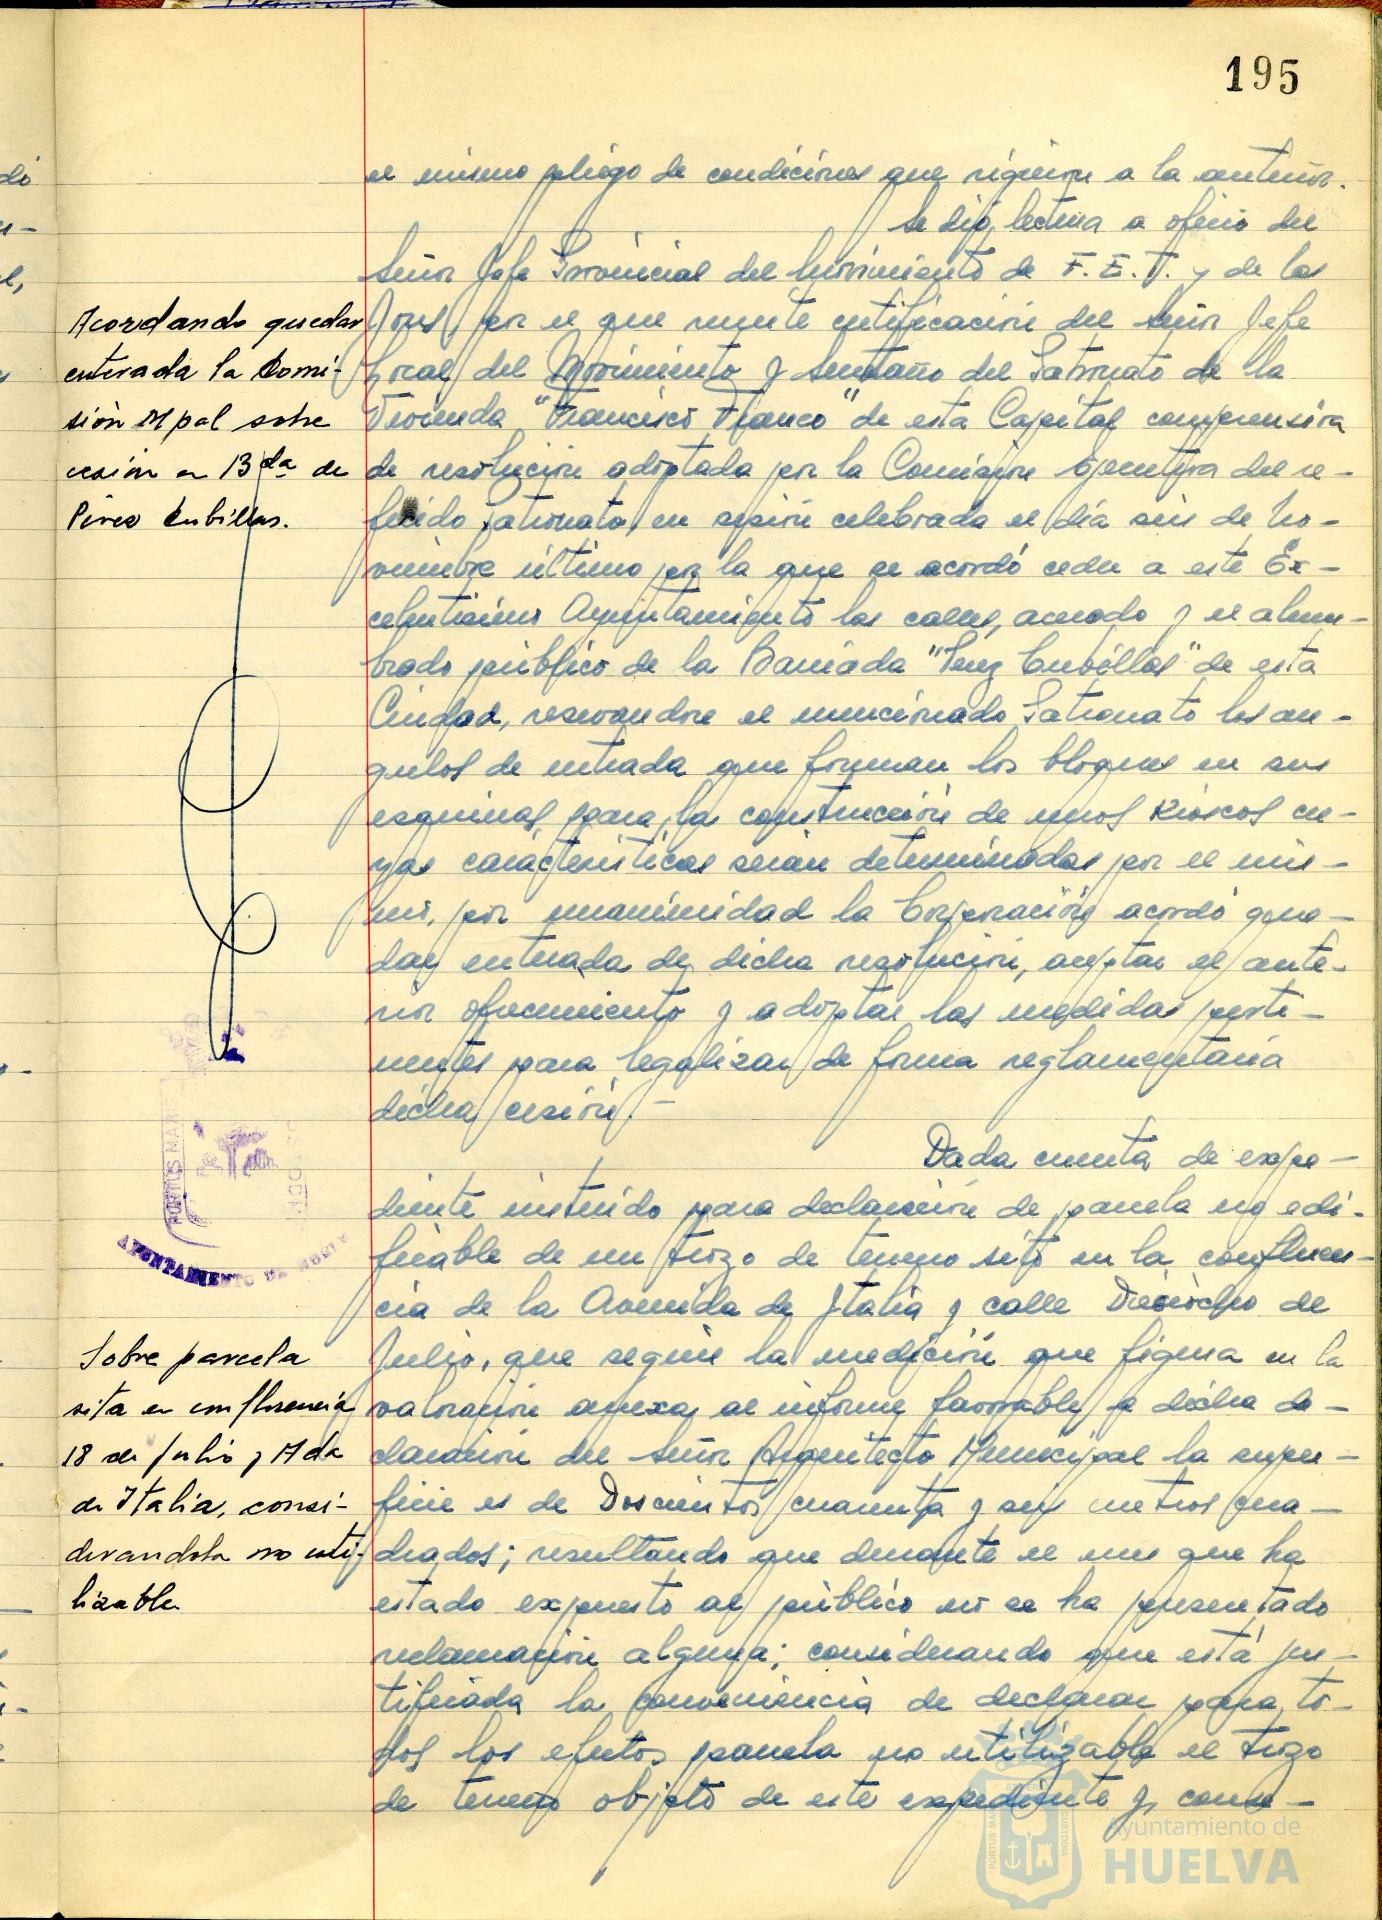 195
el mismo pliego de condiciones que rigieron a la anterior.
Se dió lectura a oficio del
Señor Jefe Provincial del Movimiento de F. E. T. y de las
Jons, por el que remite certificación del Señor Jefe
Local del Movimiento y Secretario del Patronato de la
Vivienda "Francisco Franco" de esta Capital comprensiva
de resolución adoptada por la Comisión Ejecutiva del re-
ferido Patronato, en sesión celebrada el día seis de No-
viembre último por la que se acordó ceder a este Ex-
celentísimo Ayuntamiento las calles, acerado y el alum-
brado público de la Barriada "Perez Cubillas" de esta
Ciudad, reservandose el mencionado Patronato los an-
gulos de entrada que forman los bloques en sus
esquinas para la construcción de unos Kioscos cu-
yas características serán determinadas por el mis-
mo, por unanimidad la Corporación acordó que-
dar enterada de dicha resolución, aceptar el ante-
rior ofrecimiento y adoptar las medidas perti-
nentes para legalizar de forma reglamentaria
dicha cesión.-
Acordando quedar
enterada la Comi-
sión Mpal sobre
cesión en Bda de
Pérez Cubillas.
PORTUS MAR
AYUNTAMIENTO DE HUELVA
Dada cuenta de expe-
diente instruido para declaración de parcela no edi-
ficable de un trozo de terreno sito en la confluen-
cia de la Avenida de Italia y calle Dieciocho de
Julio, que según la medición que figura en la
valoración anexa al informe favorable a dicha de-
claración del Señor Arquitecto Municipal la super-
ficie es de Doscientos cuarenta y seis metros cua-
drados; resultando que durante el mes que ha
estado expuesto al público no se ha presentado
reclamación alguna; considerando que está jus-
tificada la conveniencia de declarar para to-
dos los efectos parcela no utilizable el trozo
de terreno objeto de este expediente y, como-
Sobre parcela
sita en confluencia
18 de Julio y Avda
de Italia, consi-
derandola no uti-
lizable
Ayuntamiento de
HUELVA